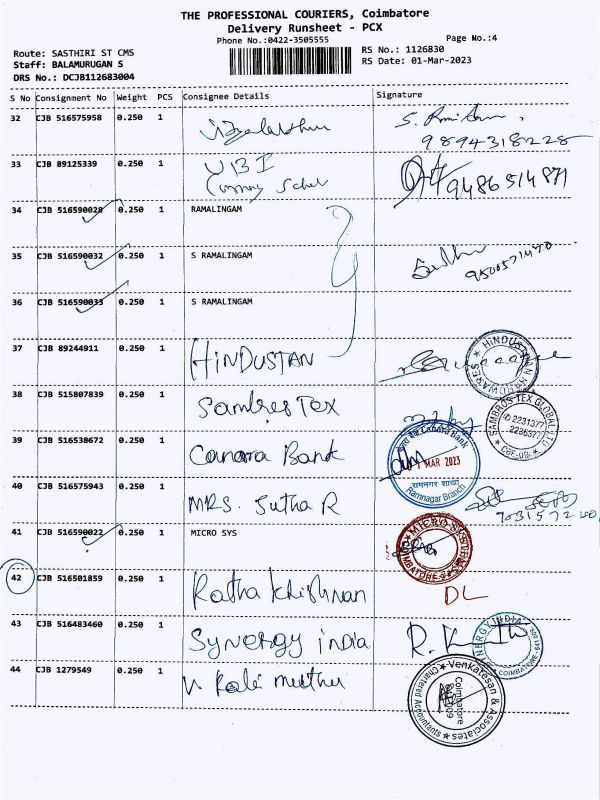 THE PROFESSIONAL COURIERS, Coimbatore
Delivery Runsheet - PCX
Phone No.:0422-3505555
Page No.:4
Route: SASTHIRI ST CMS
Staff: BALAMURUGAN S
DRS No.: DCJB112683004
RS No.: 1126830
RS Date: 01-Mar-2023
S No Consignment No Weight PCS Consignee Details Signature
32 CJB 516575958 0.250 1
9894318228
33 CJB 89125339 0.250 1 UBI
9486514871
34 CJB 516590028 0.250 1 RAMALINGAM
35 CJB 516590032 0.250 1 S RAMALINGAM
36 CJB 516590033 0.250 1 S RAMALINGAM
37 CJB 89244911 0.250 1 HINDUSTAN
HINDUSTAN HARDWARES
38 CJB 515807839 0.250 1 Sambres Tex
SAMBROS TEX GLOBAL LTD
2231377
2236377
39 CJB 516538672 0.250 1 Canara Bank
Canara Bank
MAR 2023
रामनगर शाखा
Ramnagar Branch
40 CJB 516575943 0.250 1 MRS. Sutha R
41 CJB 516590022 0.250 1 MICRO SYS
COIMBATORE
42 CJB 516501859 0.250 1 Ratha Krishnan
DL
43 CJB 516483460 0.250 1 Synergy india
R.
COIMBATORE
44 CJB 1279549 0.250 1
Venkatesan & Associates
Coimbatore
Chartered Accountants